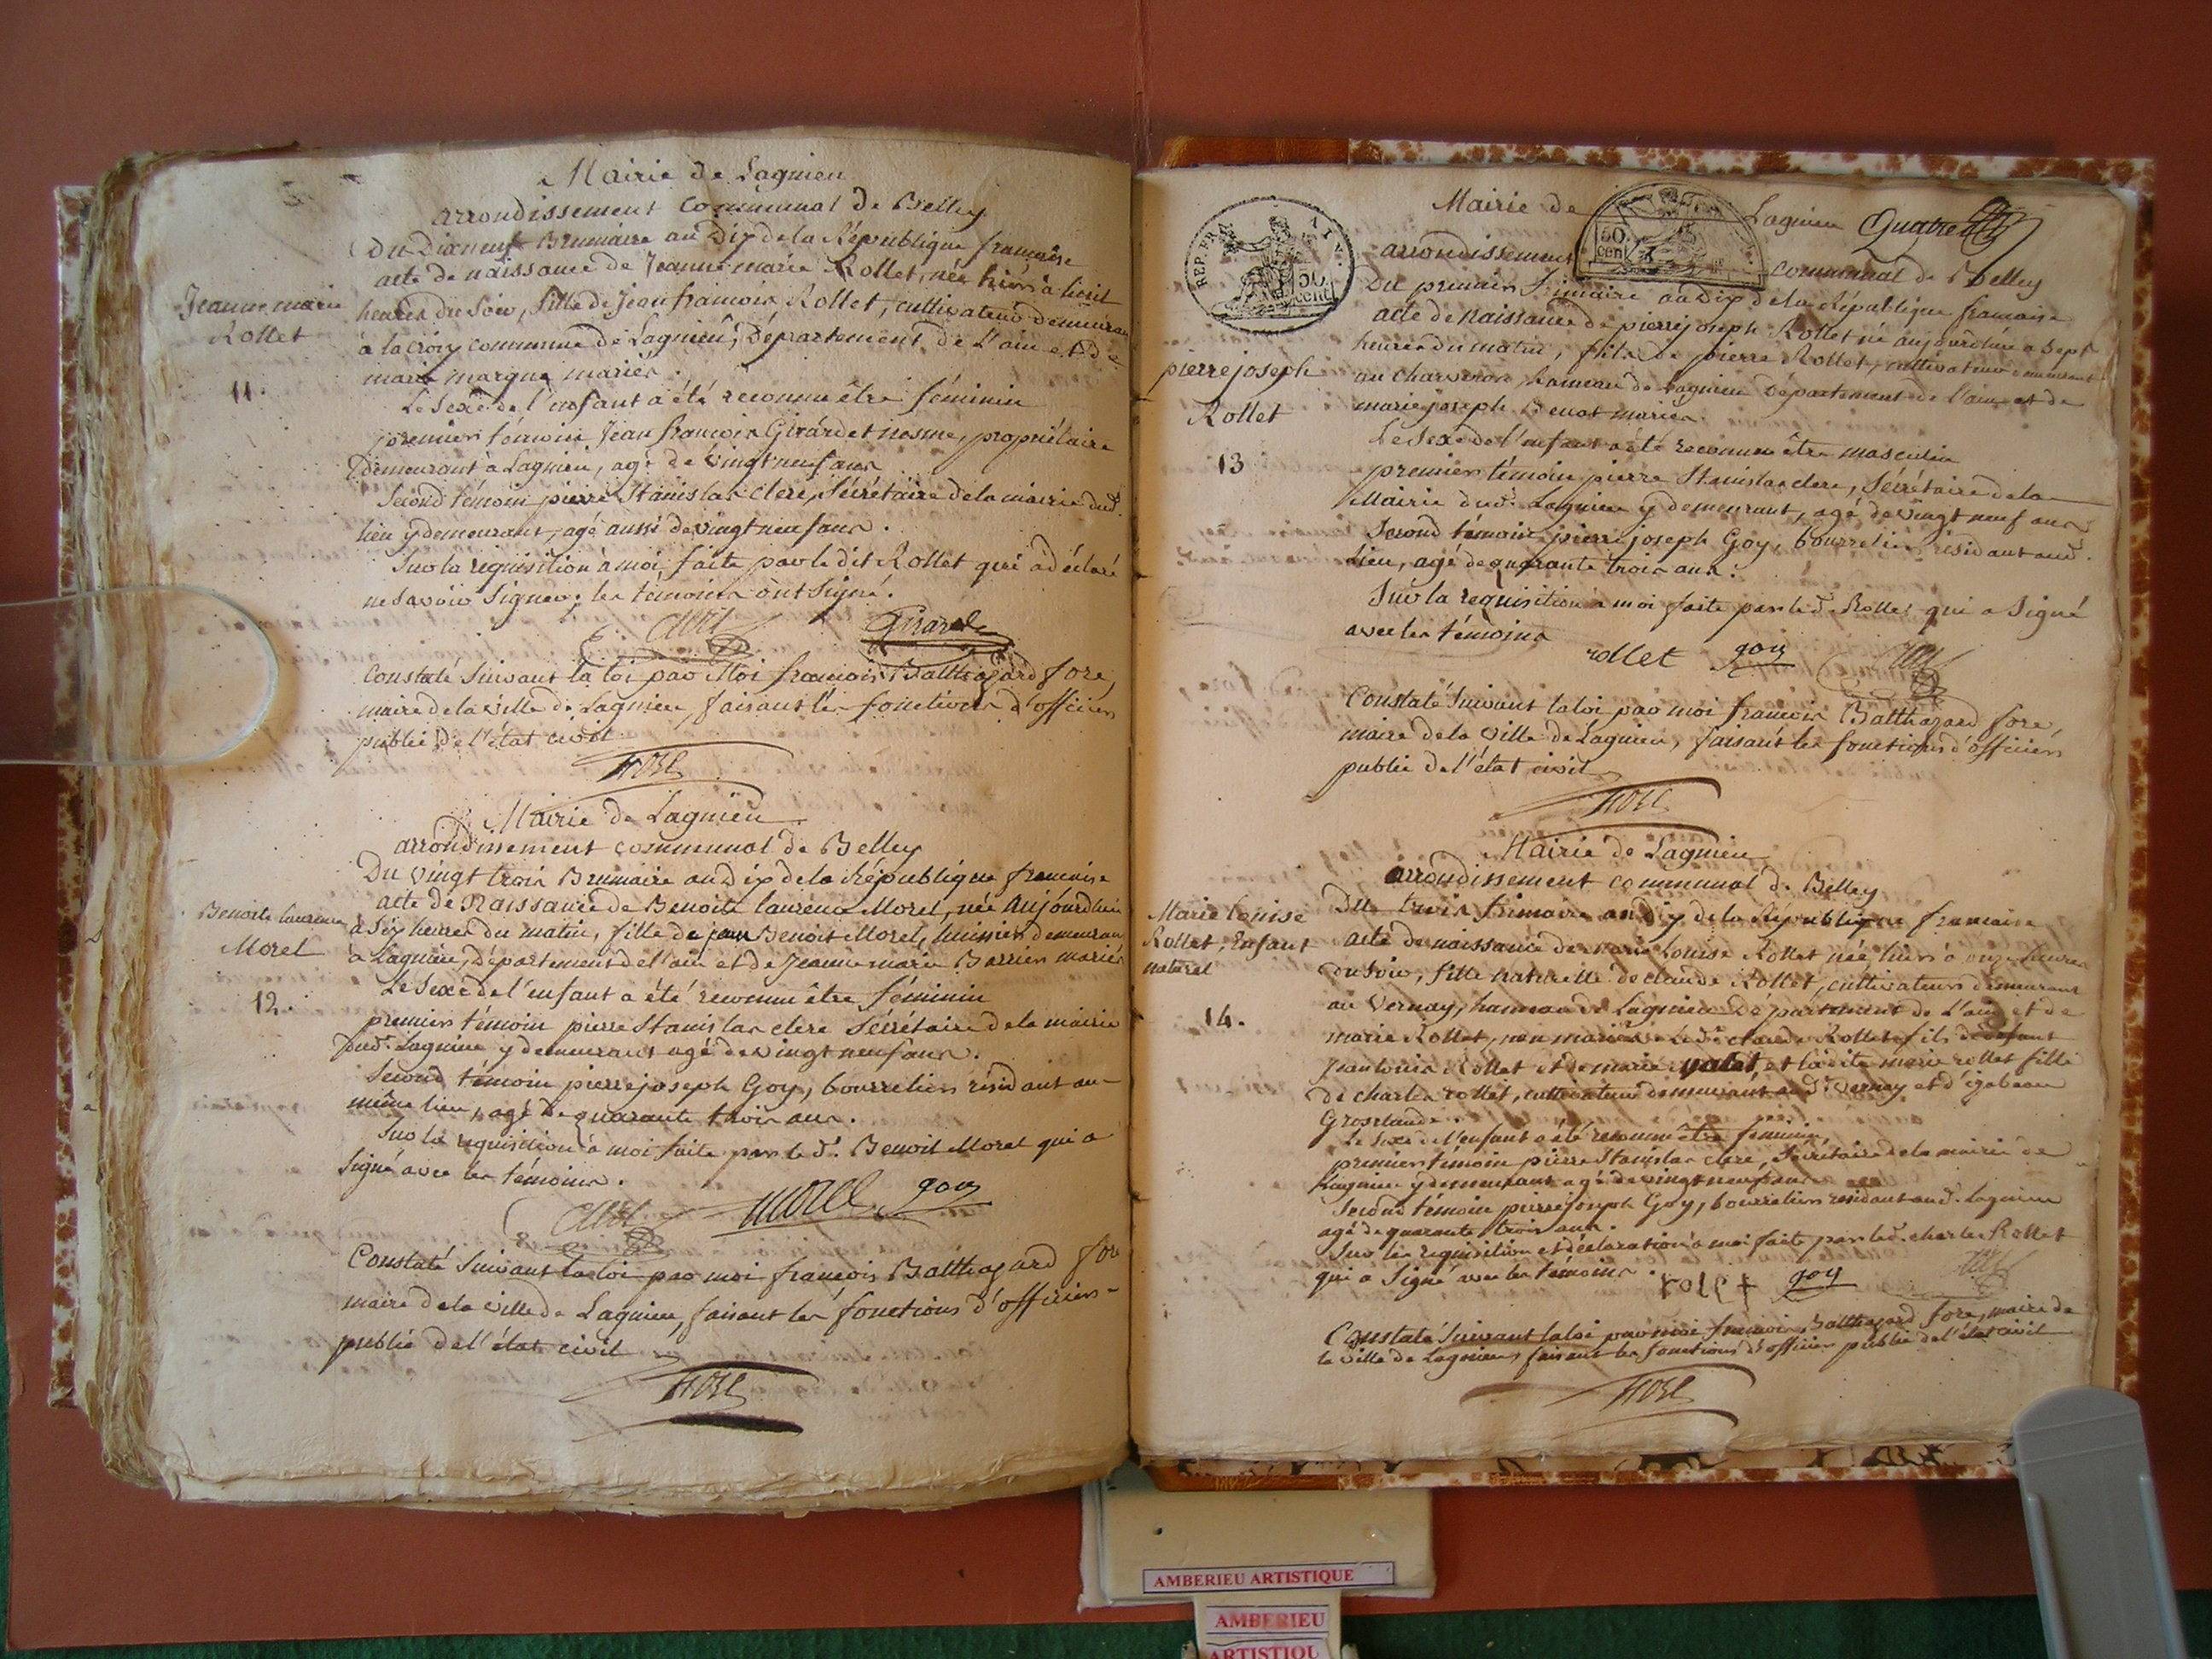 Mairie de Lagnieu
arrondissement communal de Belley
Du Dixneuf Brumaire an Dix de la République francaise
acte de naissance de Jeanne marie Rollet, née hier à huit
heures du Soir, fille de Jean francois Rollet, cultivateur demeurant
à la croix commune de Lagnieu, Département de L'ain et de
marie margue mariés.
Jeanne marie
Rollet
11.
Le Sexe de l'enfant a été reconnu être féminin
premier témoin Jean francois Girardet nosme, propriétaire
demeurant à Lagnieu, agé de vingt neuf ans
Second témoin pierre Stanislas clerc, Sécrétaire de la mairie dud.
lieu y demeurant, agé aussi de vingt neuf ans.
Sur la requisition à moi faite par le dit Rollet qui a déclaré
ne Savoir Signer; les témoins ont Signé.
Girard
Constaté Suivant la loi par Moi francois Balthazard fore,
maire de la ville de Lagnieu, faisant les fonctions d'officier
public de l'état civil
fore
Mairie de Lagnieu
arrondissement communal de Belley
Du vingt trois Brumaire an Dix de la République francaise
acte de Naissance de Benoite laurence Morel, née Aujourdhui
à Six heures du matin, fille de jean Benoit Morel, huissier demeurant
à Lagnieu, département de l'ain et de Jeanne marie Barrier mariés
Benoite laurence
Morel
12.
Le Sexe de l'enfant a été reconnu être féminin
premier témoin pierre Stanislas clerc Sécrétaire de la mairie
dud. Lagnieu y demeurant agé de vingt neuf ans.
Second témoin pierre joseph Goy, bourrelier résidant au
même lieu, agé de quarante trois ans.
Sur la requisition à moi faite par le d. Benoit Morel qui a
Signé avec les témoins.
morel goy
Constaté Suivant la loi par moi françois Balthazard fore
maire de la ville de Lagnieu, faisant les fonctions d'officier
public de l'état civil
fore
REP. FRA.
50
cent
50
cent
Mairie de Lagnieu Quatre
arrondissement communal de Belley
Du premier frimaire an Dix de la République francaise
acte de naissance de pierre joseph Rollet né aujourdhui a Sept
heures du matin, fils de pierre Rollet, cultivateur demeurant
au charveron, hameau de Lagnieu Département de l'ain et de
marie joseph Benot mariés.
pierre joseph
Rollet
13
Le Sexe de l'enfant a été reconnu être masculin
premier témoin pierre Stanislas clerc, Sécrétaire de la
Mairie dud. Lagnieu y demeurant, agé de vingt neuf ans
Second témoin pierre joseph Goy, bourrelier résidant aud.
Lieu, agé de quarante trois ans.
Sur la requisition à moi faite par le d. Rollet qui a Signé
avec les témoins
rollet goy
Constaté Suivant la loi par moi francois Balthazard fore,
maire de la ville de Lagnieu, faisant les fonctions d'officier
public de l'état civil
fore
Mairie de Lagnieu
arrondissement communal de Belley
Du trois frimaire an Dix de la République francaise
acte de naissance de marie Louise Rollet née hier à onze heures
du Soir, fille naturelle de claude Rollet, cultivateur demeurant
au Vernay, hameau de Lagnieu Département de L'ain et de
marie Rollet, non mariés. Led. claude Rollet fils de defunt
Jean louis Rollet et de marie yalet, et la dite marie rollet fille
de charles rollet, cultivateur demeurant aud. Vernay et d'izabeau
Groslande.
Marie louise
Rollet, Enfant
naturel
14.
Le Sexe de l'enfant a été reconnu être féminin,
premier témoin pierre Stanislas clerc, Sécrétaire de la mairie de
Lagnieu y demeurant agé de vingt neuf ans
Second témoin pierre joseph Goy, bourrelier residant aud. Lagnieu
agé de quarante trois ans.
Sur la requisition et déclaration à moi faite par led. charles Rollet
qui a Signé avec les témoins.
goy
Constaté Suivant la loi par moi francois Balthazard fore, maire de
la ville de Lagnieu, faisant les fonctions d'officier public de l'état civil
fore
AMBERIEU ARTISTIQUE
AMBERIEU
ARTISTIQU